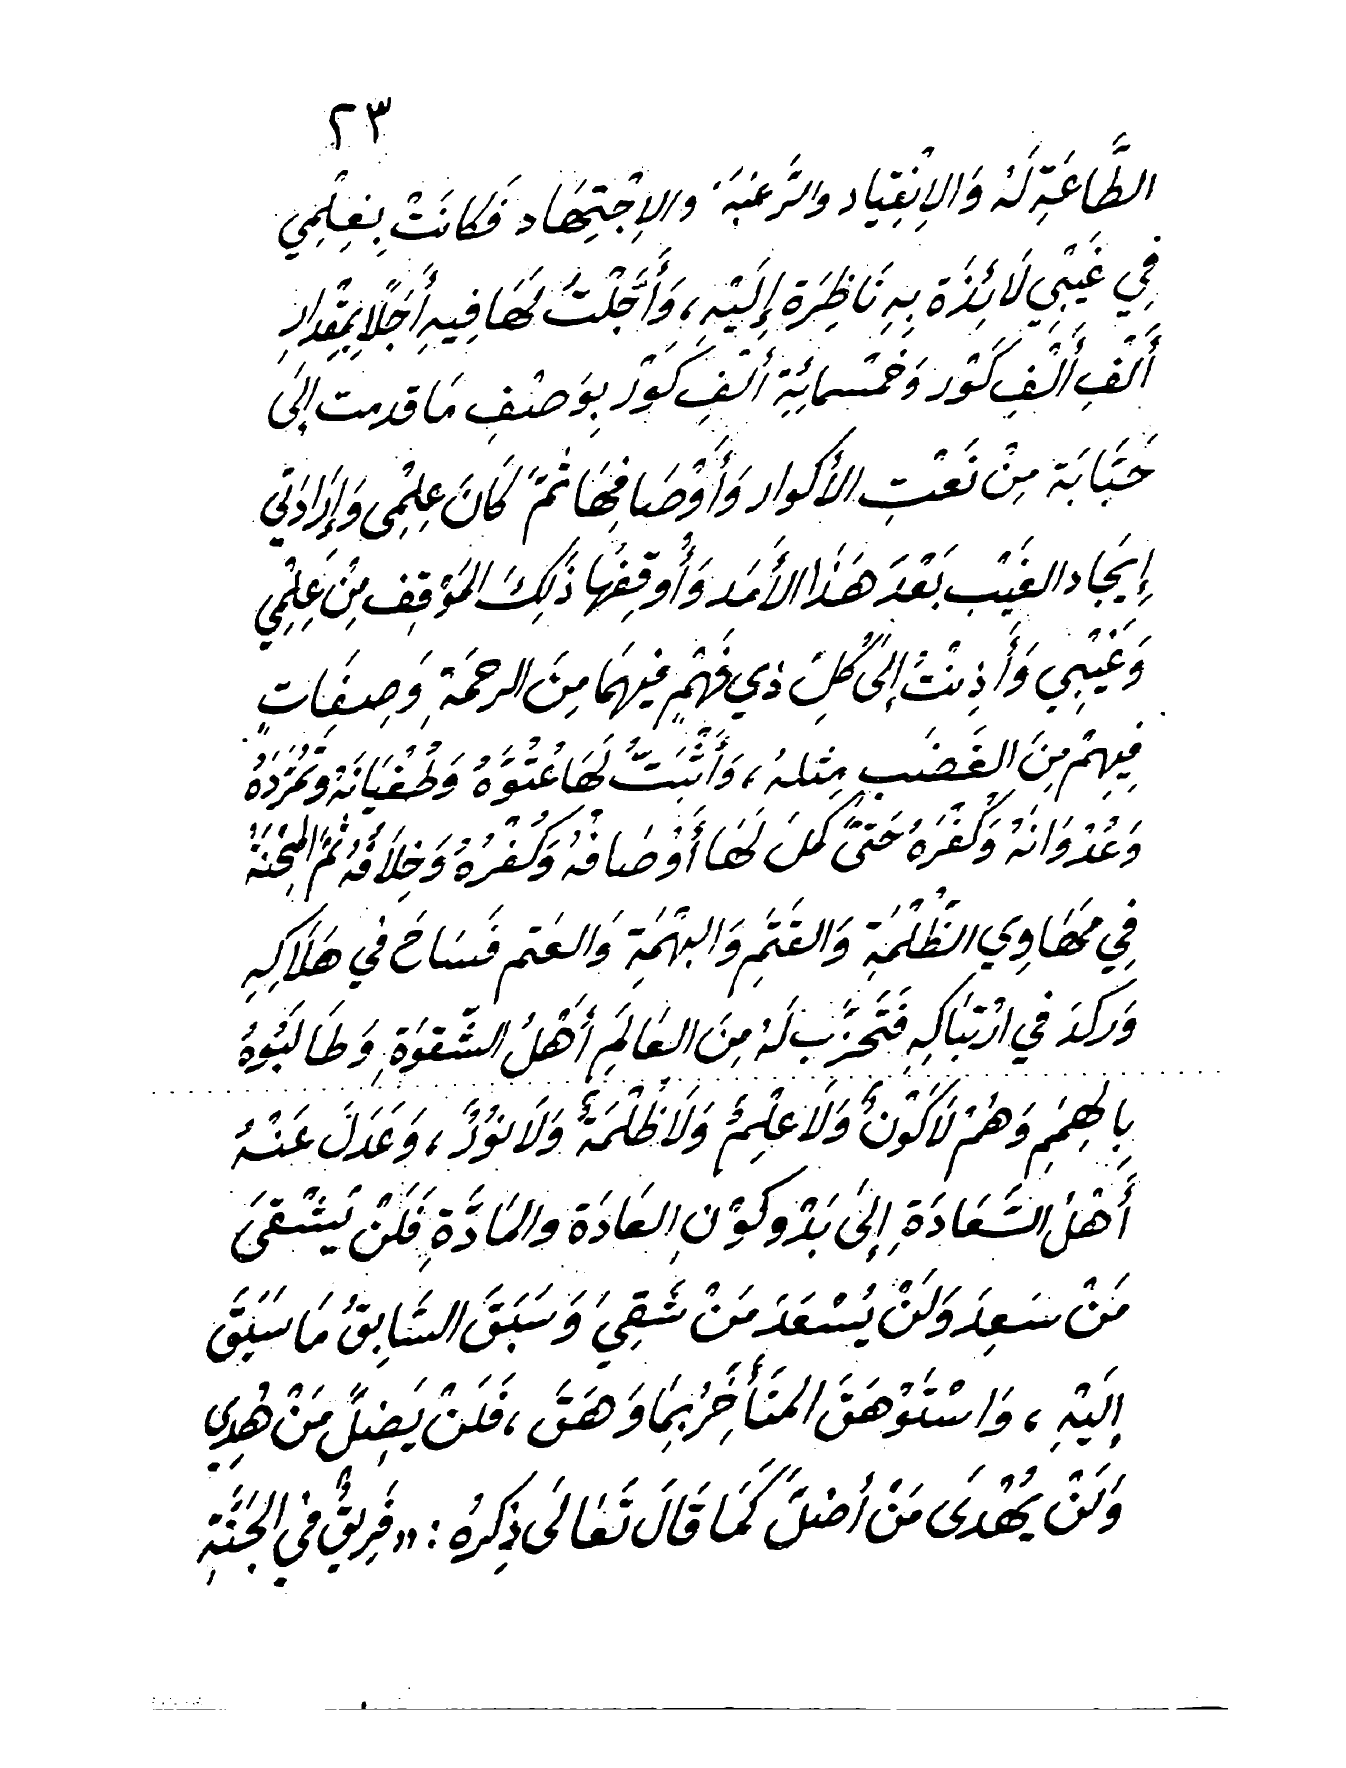 ٢٣
الطَّاعَةِ لَهُ وَالإِنْقِيَاد والرَّغْبَةَ والإِجْتِهَاد فَكَانَتْ بِعِلْمِي
فِي غَيْبِي لَائِذَة بِهِ نَاظِرَة إِلَيْهِ، وَأَجَّلْتُ لَهَا فِيهِ أَجَلًا بِمِقْدَارِ
أَلْفِ أَلْفِ كَوْر وَخَمْسمائِة أَلْفِ كَوْر بِوَصْفِ مَا قدمت إِلَى
حَبَّابَة مِنْ نَعْتِ الأَكوار وَأَوْصَافِهَا ثُمَّ كَانَ عِلْمِي وَإِرَادَتي
إِيجَاد الغَيْب بَعْدَ هَذا الأَمَد وَأُوقِفُهَا ذَلِكَ المَوْقِف مِنْ عِلْمِي
وَغَيْبِي وَأَذِنْتُ إِلىَ كُلِّ ذي فَهْمٍ فيهَا مِنَ الرحمَة وَصِفَاتٍ
فِيهِمْ مِنَ الغَضَبِ مِثله، وَأَثْبَتُّ لَهَا عُتُوَّهُ وَطُغْيَانَهُ وتَمَرُّدَهُ
وَعُدْوَانَهُ وَكُفْرَهُ حَتىَّ كَمُلَ لَهَا أَوْصَافُهُ وَكُفْرُهُ وَخِلَافُهُ ثُمَّ المِحْنَةُ
فِي مَهَاوِي الظُّلْمَةِ وَالقَتَمِ وَالبُهْمَةِ وَالعَتم فَسَاحَ في هَلَاكِهِ
وَركدَ في ارْتِبَاكِهِ فَتَحَزَّب لَهُ مِنَ العَالَمِ أَهْلُ الشَّقوَةِ وَطَالَبُوهُ
بِالهِمَمِ وَهُمْ لَا كَوْنٌ وَلَا عِلْمٌ وَلَا ظُلْمَةٌ وَلَا نُورٌ، وَعَدَلَ عَنْهُ
أَهْلُ السَّعَادَةِ إِلىَ بَدْو كَوْنِ العَادَة والمَادَّةِ فَلَنْ يَشْقىَ
مَنْ سَعِدَ وَلَنْ يُسْعَدَ مَنْ شَقِيَ وَسَبَقَ السَّابِقُ مَا سَبَقَ
إِلَيْهِ، وَاسْتَوْهَقَ المتَأَخِّرُ بِمَا وَهَقَ، فَلَنْ يَضِلَّ مَنْ هُدِي
وَلَنْ يُهْدَى مَنْ أَضَلَّ كَمَا قَالَ تَعَالَى ذِكِرُهُ: «فَرِيقٌ في الجَنَّةِ